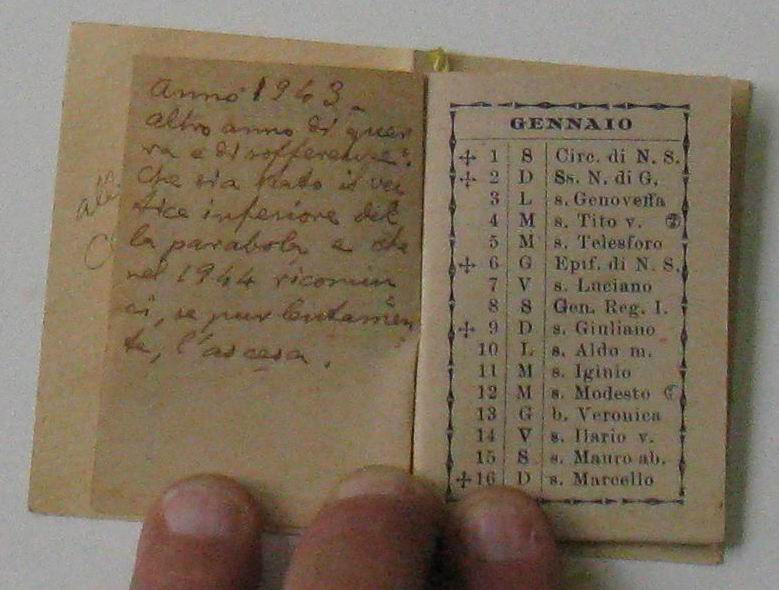 Anno 1943.
altro anno di guer
ra e di sofferenze.
Che sia stato il ver
tice inferiore del
la parabola e che
nel 1944 ricomin
ci, se pur lentamen
te, l'ascesa.
GENNAIO
1 S Circ. di N. S.
2 D Ss. N. di G.
3 L s. Genoveffa
4 M s. Tito v.
5 M s. Telesforo
6 G Epif. di N. S.
7 V s. Luciano
8 S Gen. Reg. I.
9 D s. Giuliano
10 L s. Aldo m.
11 M s. Iginio
12 M s. Modesto
13 G b. Veronica
14 V s. Ilario v.
15 S s. Mauro ab.
16 D s. Marcello